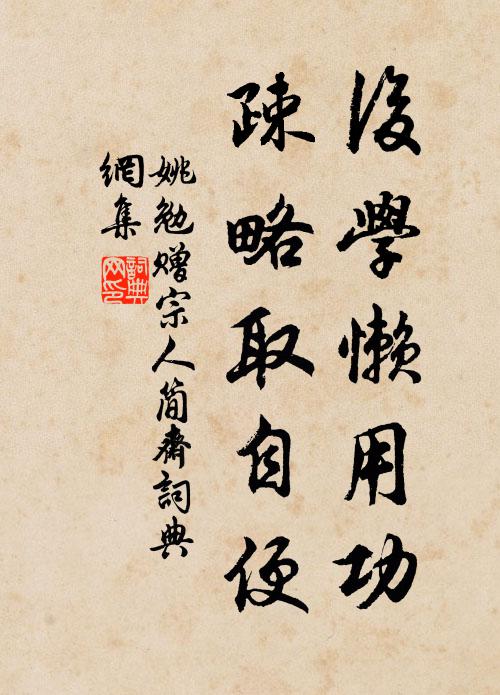 後學懶用功
疎略取自便
姚勉贈宗人簡齋詞典
網集
詞典
网印